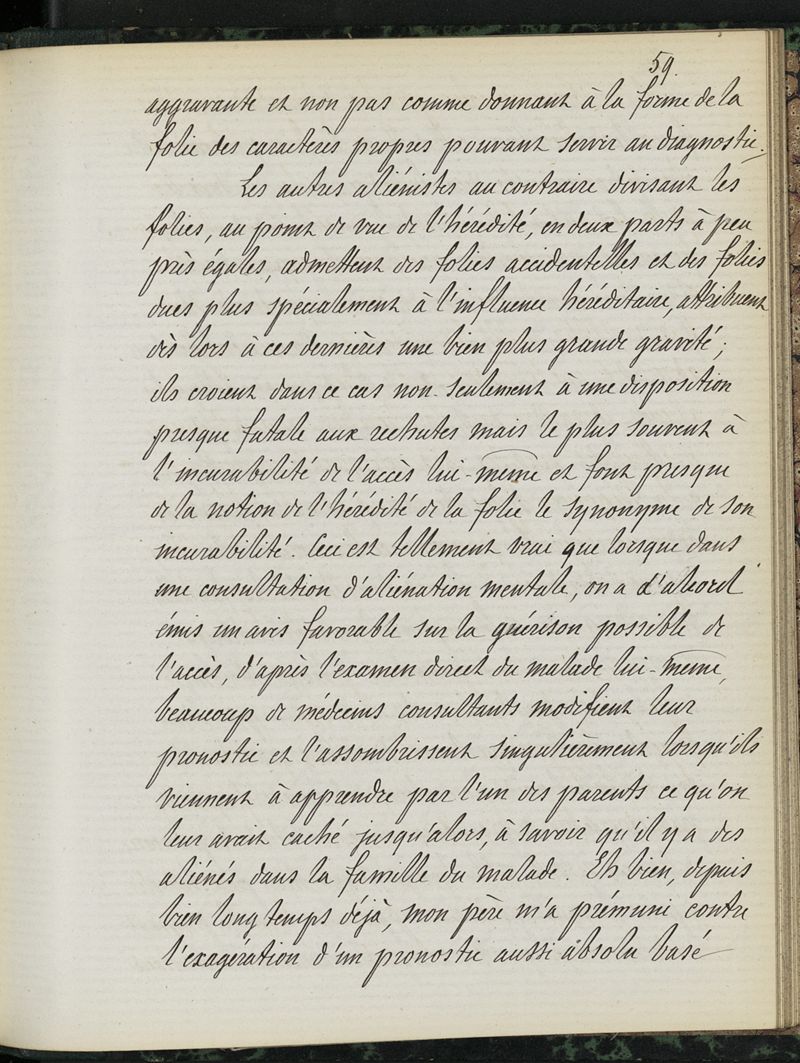 59.
aggravante et non pas comme donnant à la forme de la
folie des caractères propres pouvant servir au diagnostic.
Les autres aliénistes au contraire divisant les
folies, au point de vue de l'hérédité, en deux parts à peu
près égales, admettent des folies accidentelles et des folies
dues plus spécialement à l'influence héréditaire, attribuent
dès lors à ces dernières une bien plus grande gravité ;
ils croient dans ce cas non seulement à une disposition
presque fatale aux rechutes mais le plus souvent à
l'incurabilité de l'accès lui-même et font presque
de la notion de l'hérédité de la folie le synonyme de son
incurabilité. Ceci est tellement vrai que lorsque dans
une consultation d'aliénation mentale, on a d'abord
émis un avis favorable sur la guérison possible de
l'accès, d'après l'examen direct du malade lui-même,
beaucoup de médecins consultants modifient leur
pronostic et l'assombrissent singulièrement lorsqu'ils
viennent à apprendre par l'un des parents ce qu'on
leur avait caché jusqu'alors, à savoir qu'il y a des
aliénés dans la famille du malade. Eh bien, depuis
bien longtemps déjà, mon père m'a prémuni contre
l'exagération d'un pronostic aussi absolu basé